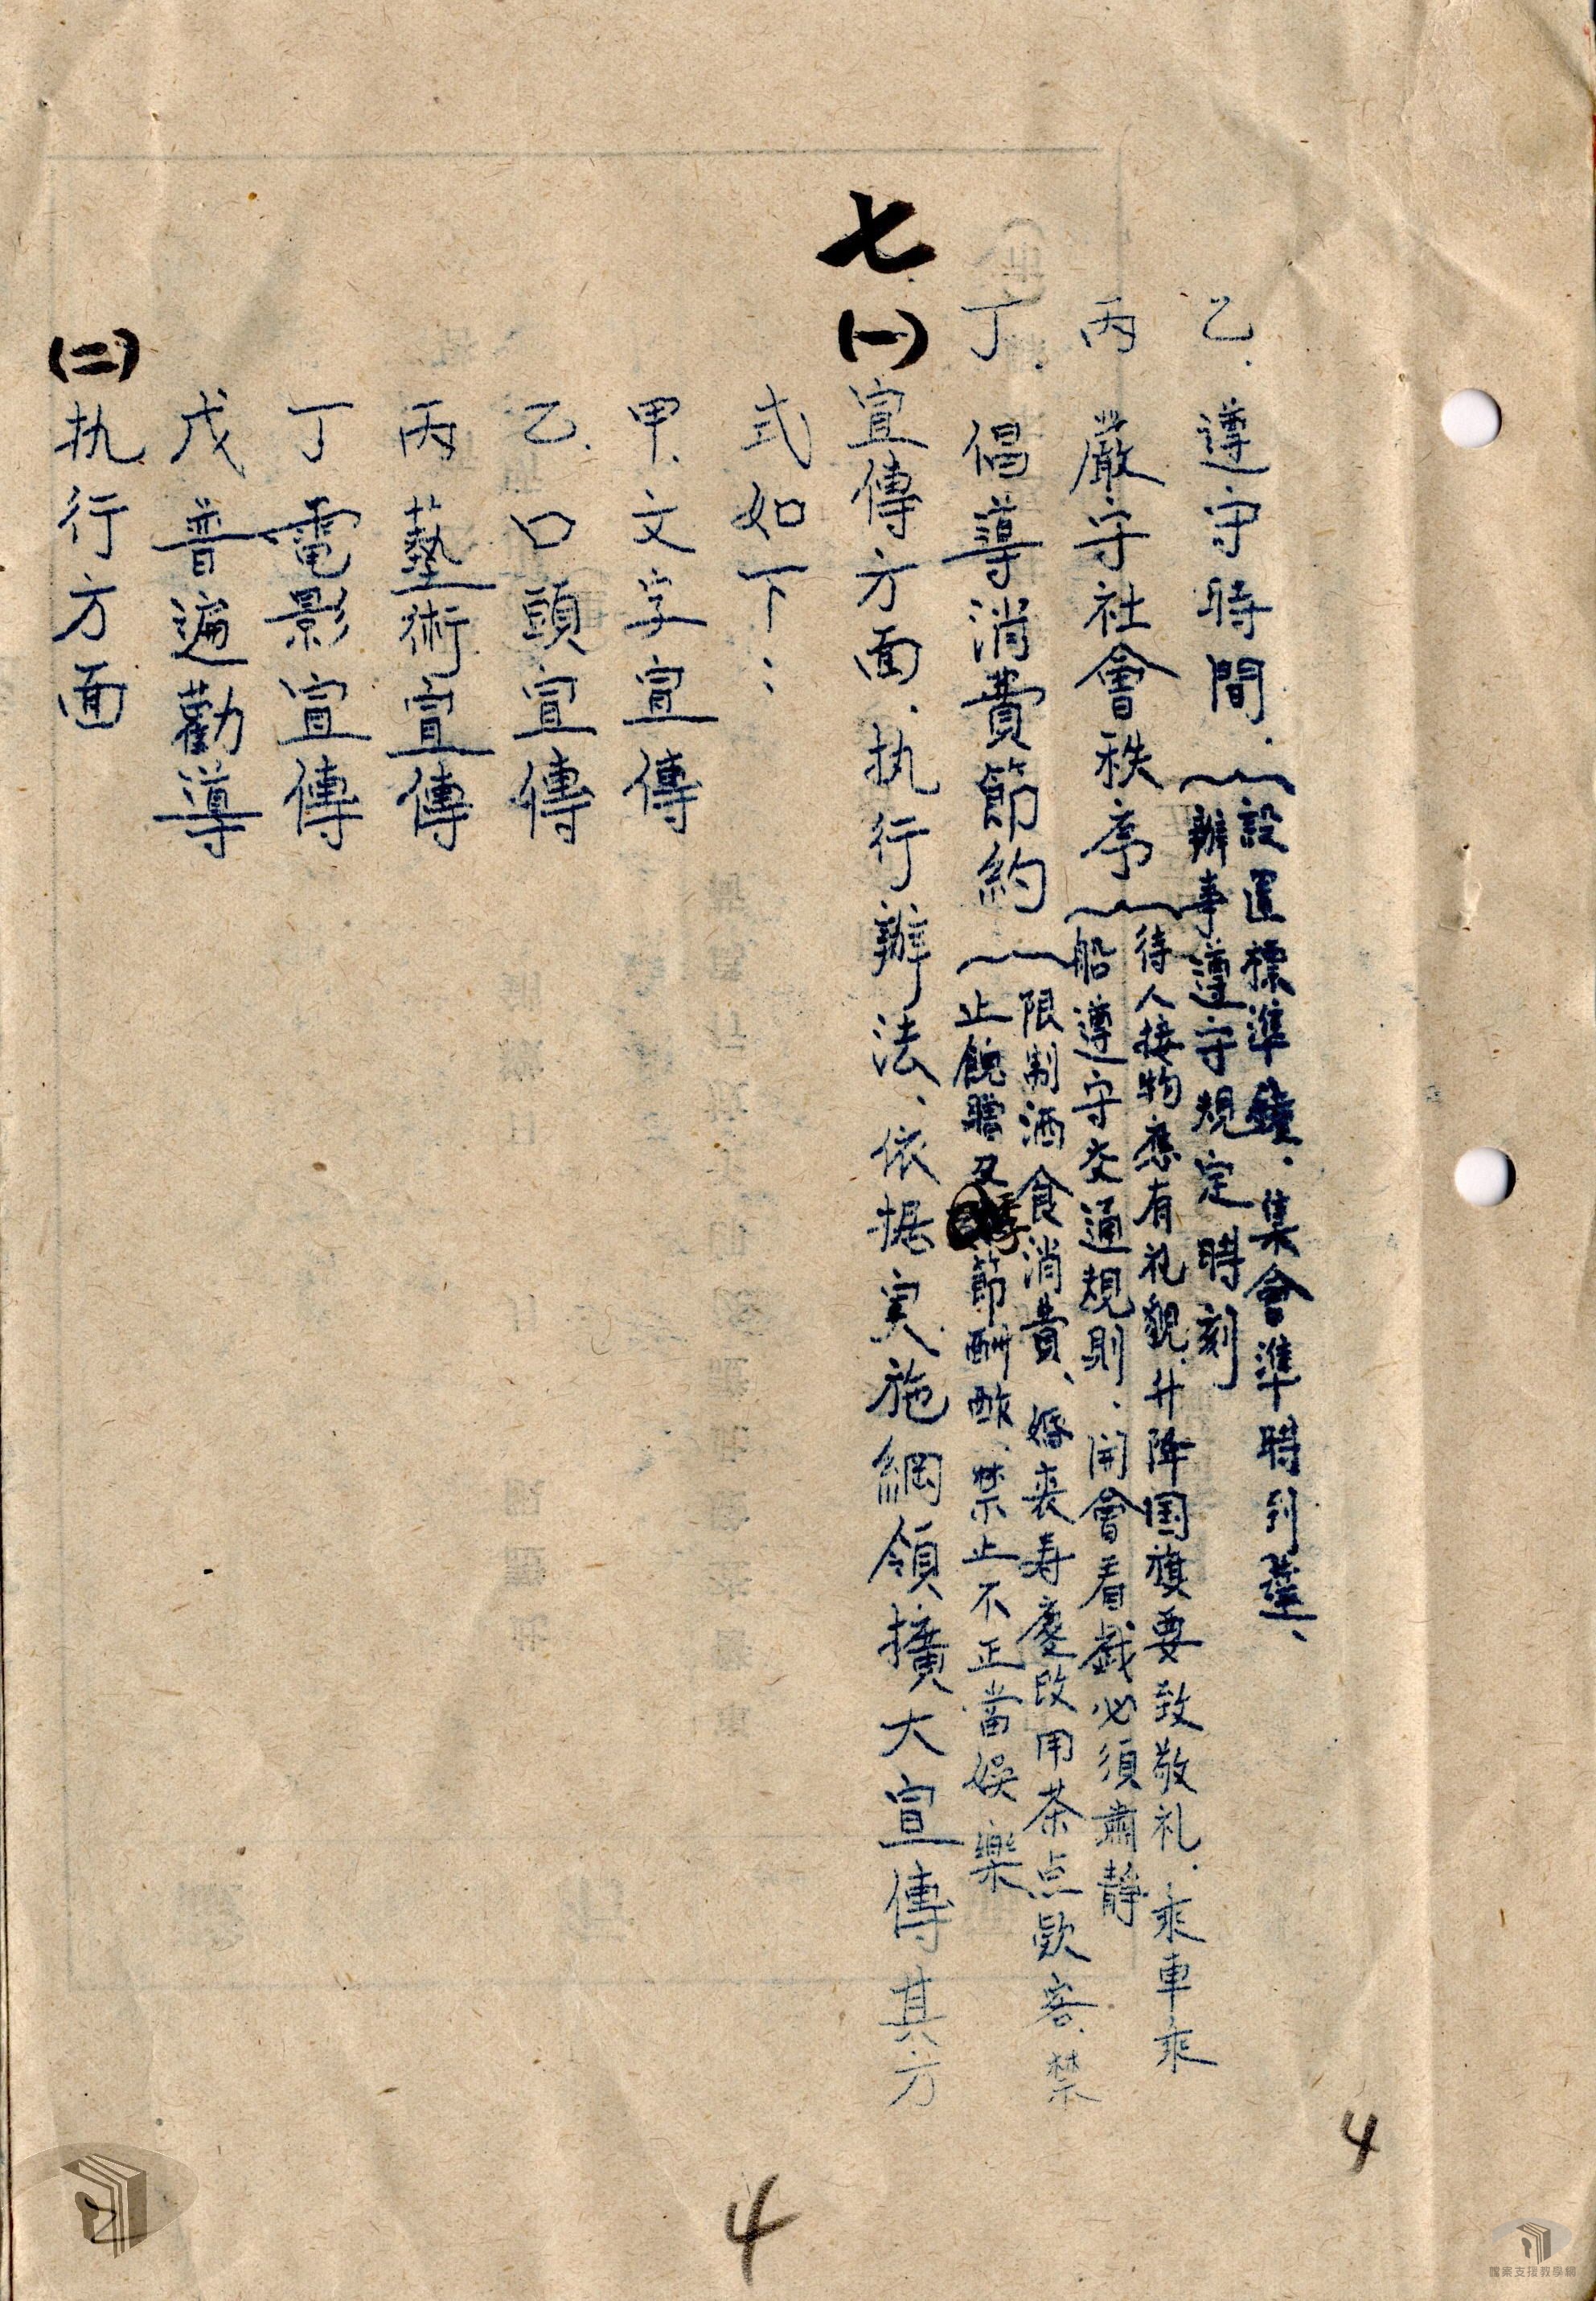 乙.遵守時間.
設置標準鐘.集會準時到達、
辦事遵守規定時刻
丙 嚴守社會秩序
待人接物應有礼貌.升降国旗要致敬礼.乘車乘
船遵守交通規則.開會看戲必須肅靜
丁.倡導消費節約
限制酒食消費、婚喪寿慶改用茶点欵客.禁
止餽贈及季節酬酢.禁止不正當娛樂
七
(一)宣傳方面.执行辦法、依据实施綱領擴大宣傳其方
式如下:
甲.文字宣傳
乙.口頭宣傳
丙 藝術宣傳
丁 電影宣傳
戊 普遍勸導
(二)执行方面
4
4
檔案支援教學網